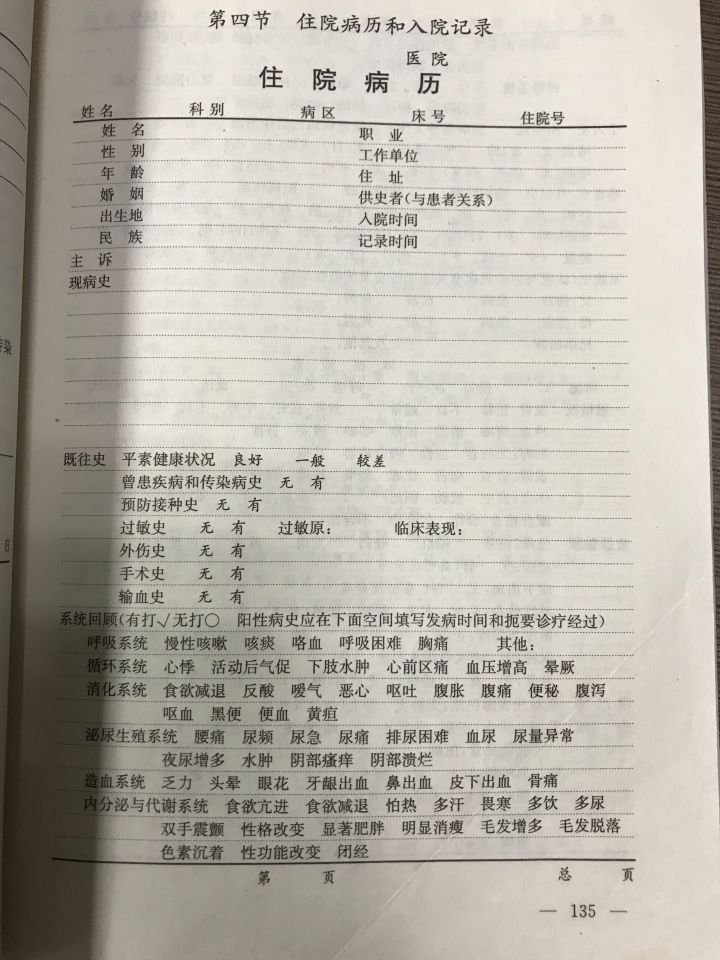 第四节 住院病历和入院记录
医院
住院病历
姓名 科别 病区 床号 住院号
姓 名 职 业
性 别 工作单位
年 龄 住 址
婚 姻 供史者(与患者关系)
出生地 入院时间
民 族 记录时间
主 诉
现病史
既往史 平素健康状况 良好 一般 较差
曾患疾病和传染病史 无 有
预防接种史 无 有
过敏史 无 有 过敏原: 临床表现:
外伤史 无 有
手术史 无 有
输血史 无 有
系统回顾(有打√无打○ 阳性病史应在下面空间填写发病时间和扼要诊疗经过)
呼吸系统 慢性咳嗽 咳痰 咯血 呼吸困难 胸痛 其他:
循环系统 心悸 活动后气促 下肢水肿 心前区痛 血压增高 晕厥
消化系统 食欲减退 反酸 嗳气 恶心 呕吐 腹胀 腹痛 便秘 腹泻
呕血 黑便 便血 黄疸
泌尿生殖系统 腰痛 尿频 尿急 尿痛 排尿困难 血尿 尿量异常
夜尿增多 水肿 阴部瘙痒 阴部溃烂
造血系统 乏力 头晕 眼花 牙龈出血 鼻出血 皮下出血 骨痛
内分泌与代谢系统 食欲亢进 食欲减退 怕热 多汗 畏寒 多饮 多尿
双手震颤 性格改变 显著肥胖 明显消瘦 毛发增多 毛发脱落
色素沉着 性功能改变 闭经
第 页 总 页
— 135 —